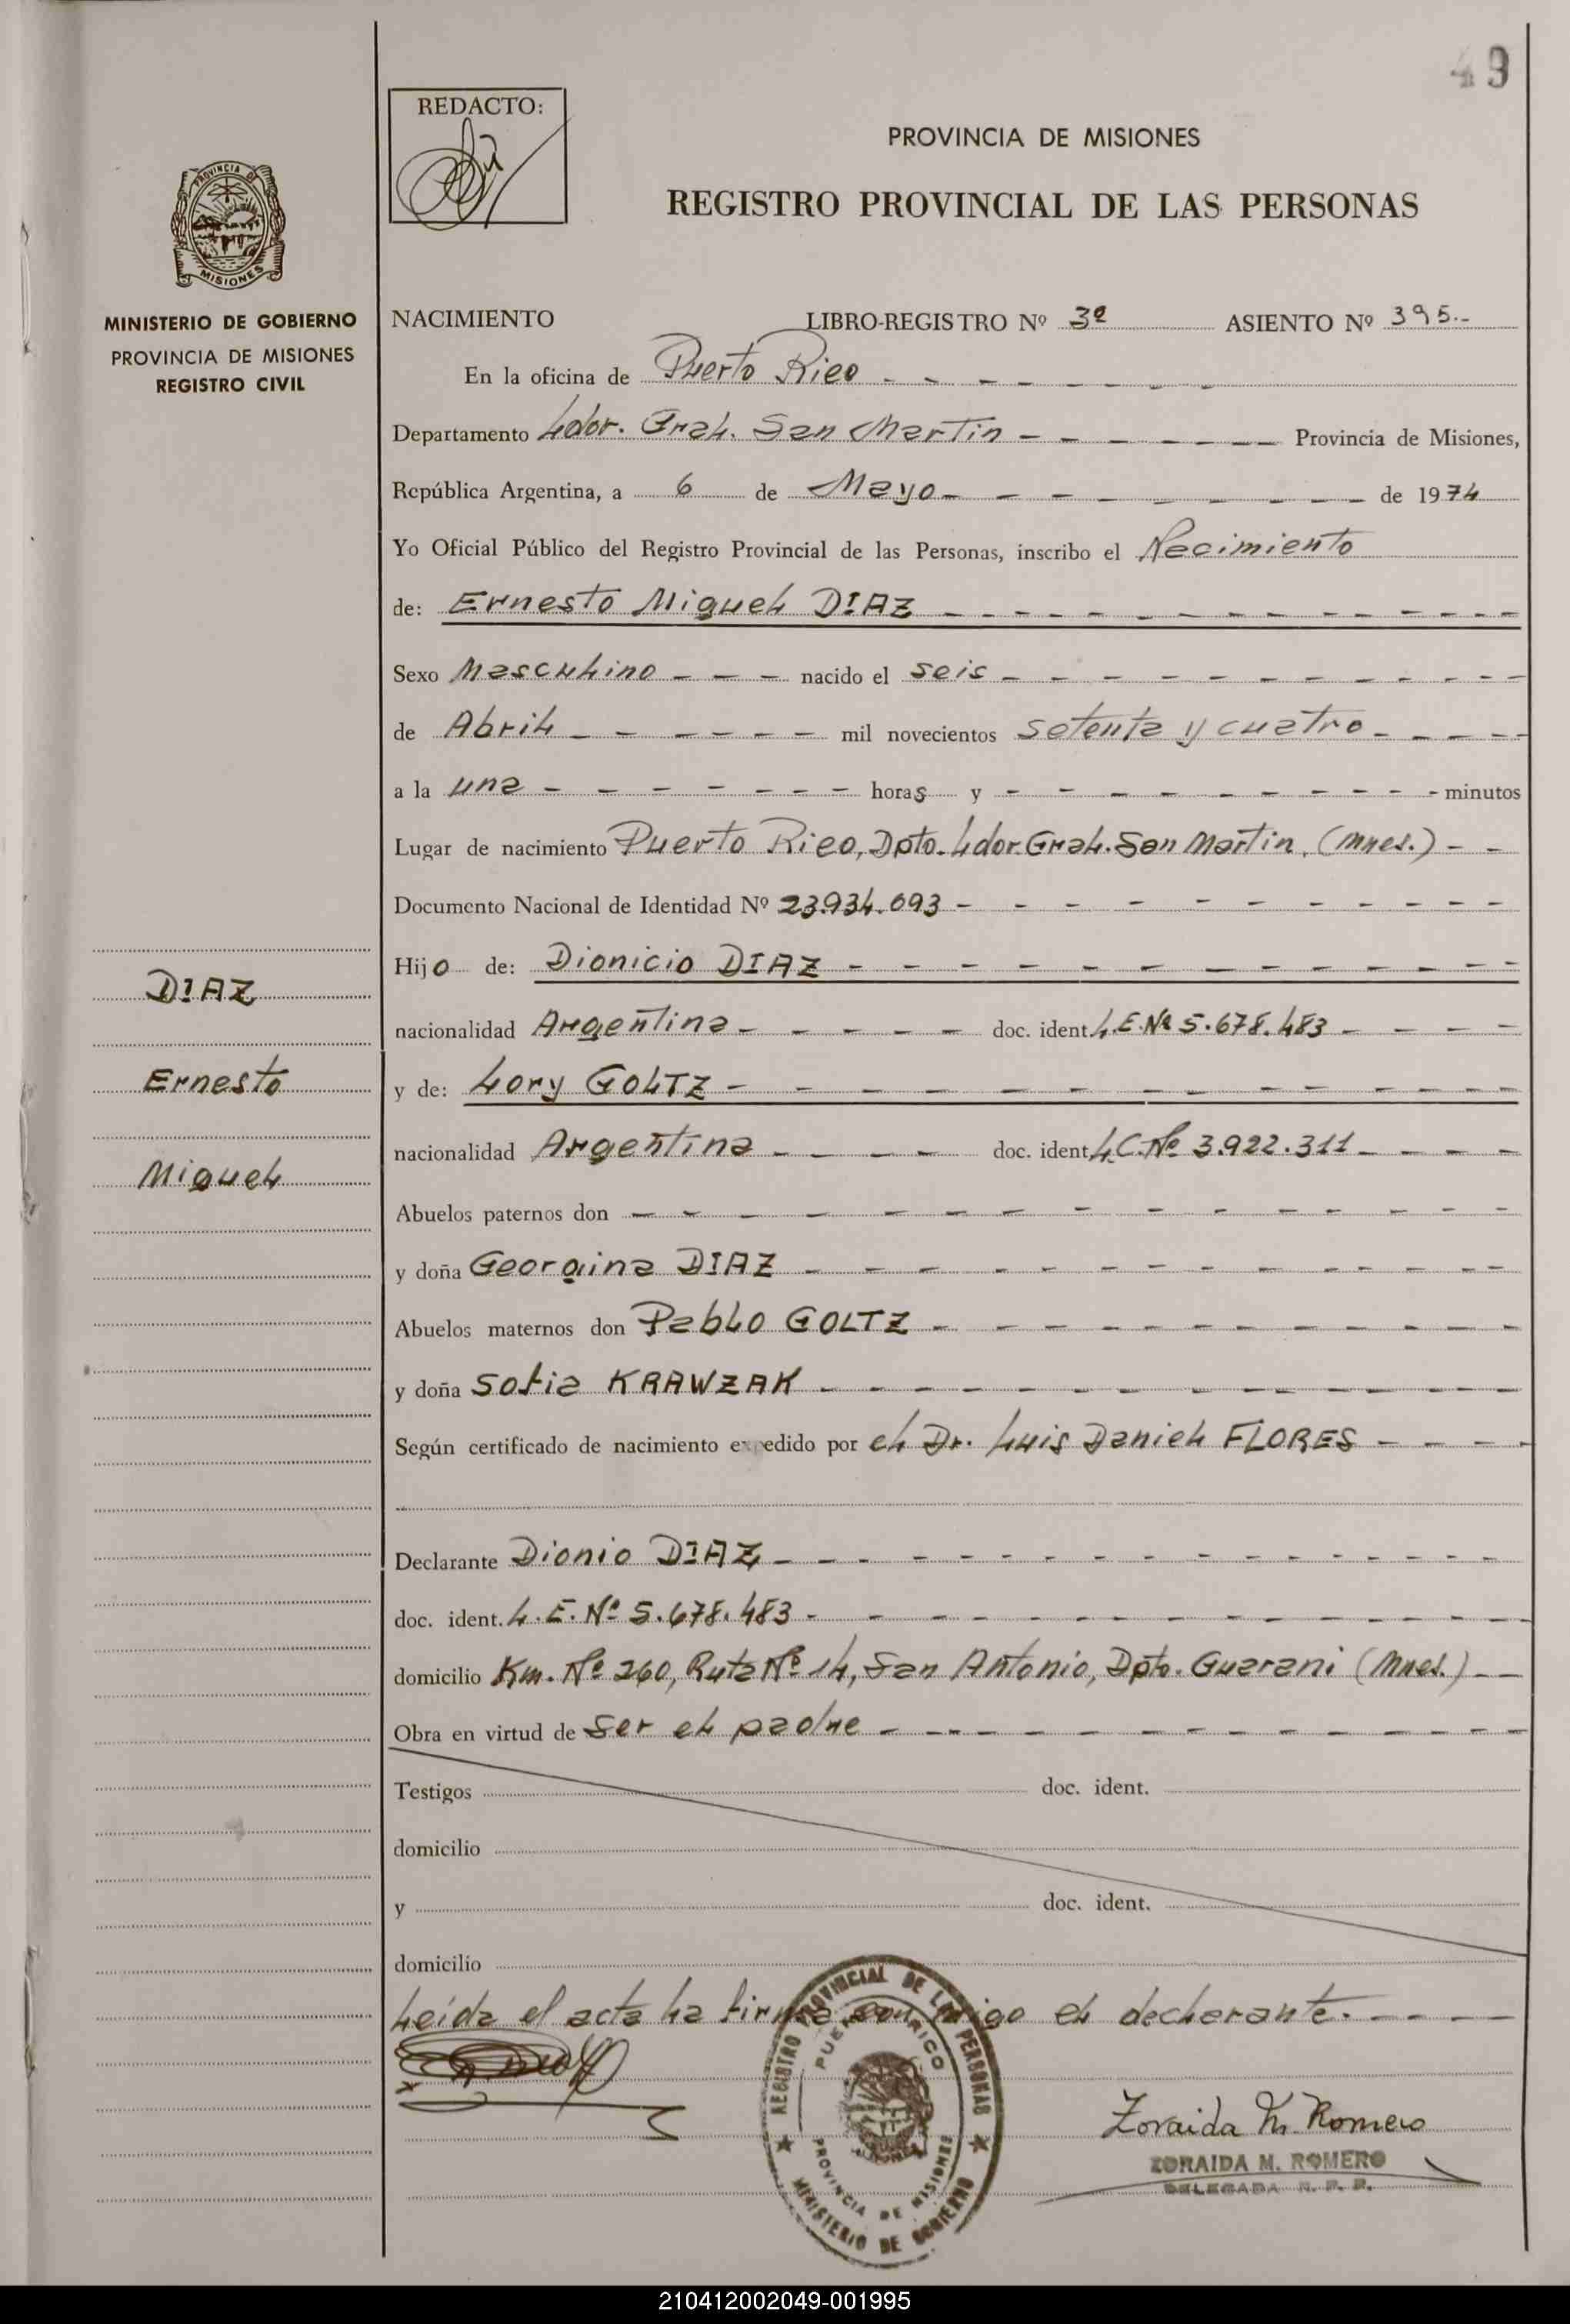 49
REDACTO:
PROVINCIA DE MISIONES
REGISTRO PROVINCIAL DE LAS PERSONAS
PROVINCIA DE
MISIONES
MINISTERIO DE GOBIERNO
PROVINCIA DE MISIONES
REGISTRO CIVIL
NACIMIENTO LIBRO-REGISTRO Nº 3º ASIENTO Nº 395.-
En la oficina de Puerto Rico - - - - - - -
Departamento Ldor. Gral. San Martin - - - - - - Provincia de Misiones,
República Argentina, a 6 de Mayo - - - - - - - - de 1974
Yo Oficial Público del Registro Provincial de las Personas, inscribo el Nacimiento
de: Ernesto Miguel DIAZ - - - - - - - - - -
Sexo Masculino - - - nacido el seis - - - - - - - - - -
de Abril - - - - - - mil novecientos setenta y cuatro - - - - -
a la una - - - - - - - horas y - - - - - - - - - minutos
Lugar de nacimiento Puerto Rico, Dpto. Ldor. Gral. San Martin, (Mnes.) - -
Documento Nacional de Identidad Nº 23.934.093 - - - - - - - - - - -
DIAZ
Ernesto
Miguel
Hijo de: Dionicio DIAZ - - - - - - - - - - - -
nacionalidad Argentina - - - - - doc. ident. L.E.Nº 5.678.483 - - - -
y de: Lory GOLTZ - - - - - - - - - - - -
nacionalidad Argentina - - - - doc. ident. L.C.Nº 3.922.311 - - - -
Abuelos paternos don - - - - - - - - - - - - - -
y doña Georgina DIAZ - - - - - - - - - - - - -
Abuelos maternos don Pablo GOLTZ - - - - - - - - - -
y doña Sofia KRAWZAK - - - - - - - - - - - -
Según certificado de nacimiento expedido por el Dr. Luis Daniel FLORES - - - -
Declarante Dionio DIAZ - - - - - - - - - - - - - - -
doc. ident. L.E. Nº 5.678.483 - - - - - - - - - - - -
domicilio Km. Nº 260, Ruta Nº 14, San Antonio, Dpto. Guarani (Mnes.) - -
Obra en virtud de ser el padre - - - - - - - - - - - -
Testigos doc. ident.
domicilio
y doc. ident.
domicilio
Leída el acta ha firma conmigo el declarante. - - - -
REGISTRO PROVINCIAL DE LAS PERSONAS
PUERTO RICO
PROVINCIA DE MISIONES
MINISTERIO DE GOBIERNO
Zoraida M. Romero
ZORAIDA M. ROMERO
DELEGADA R. P. P.
210412002049-001995